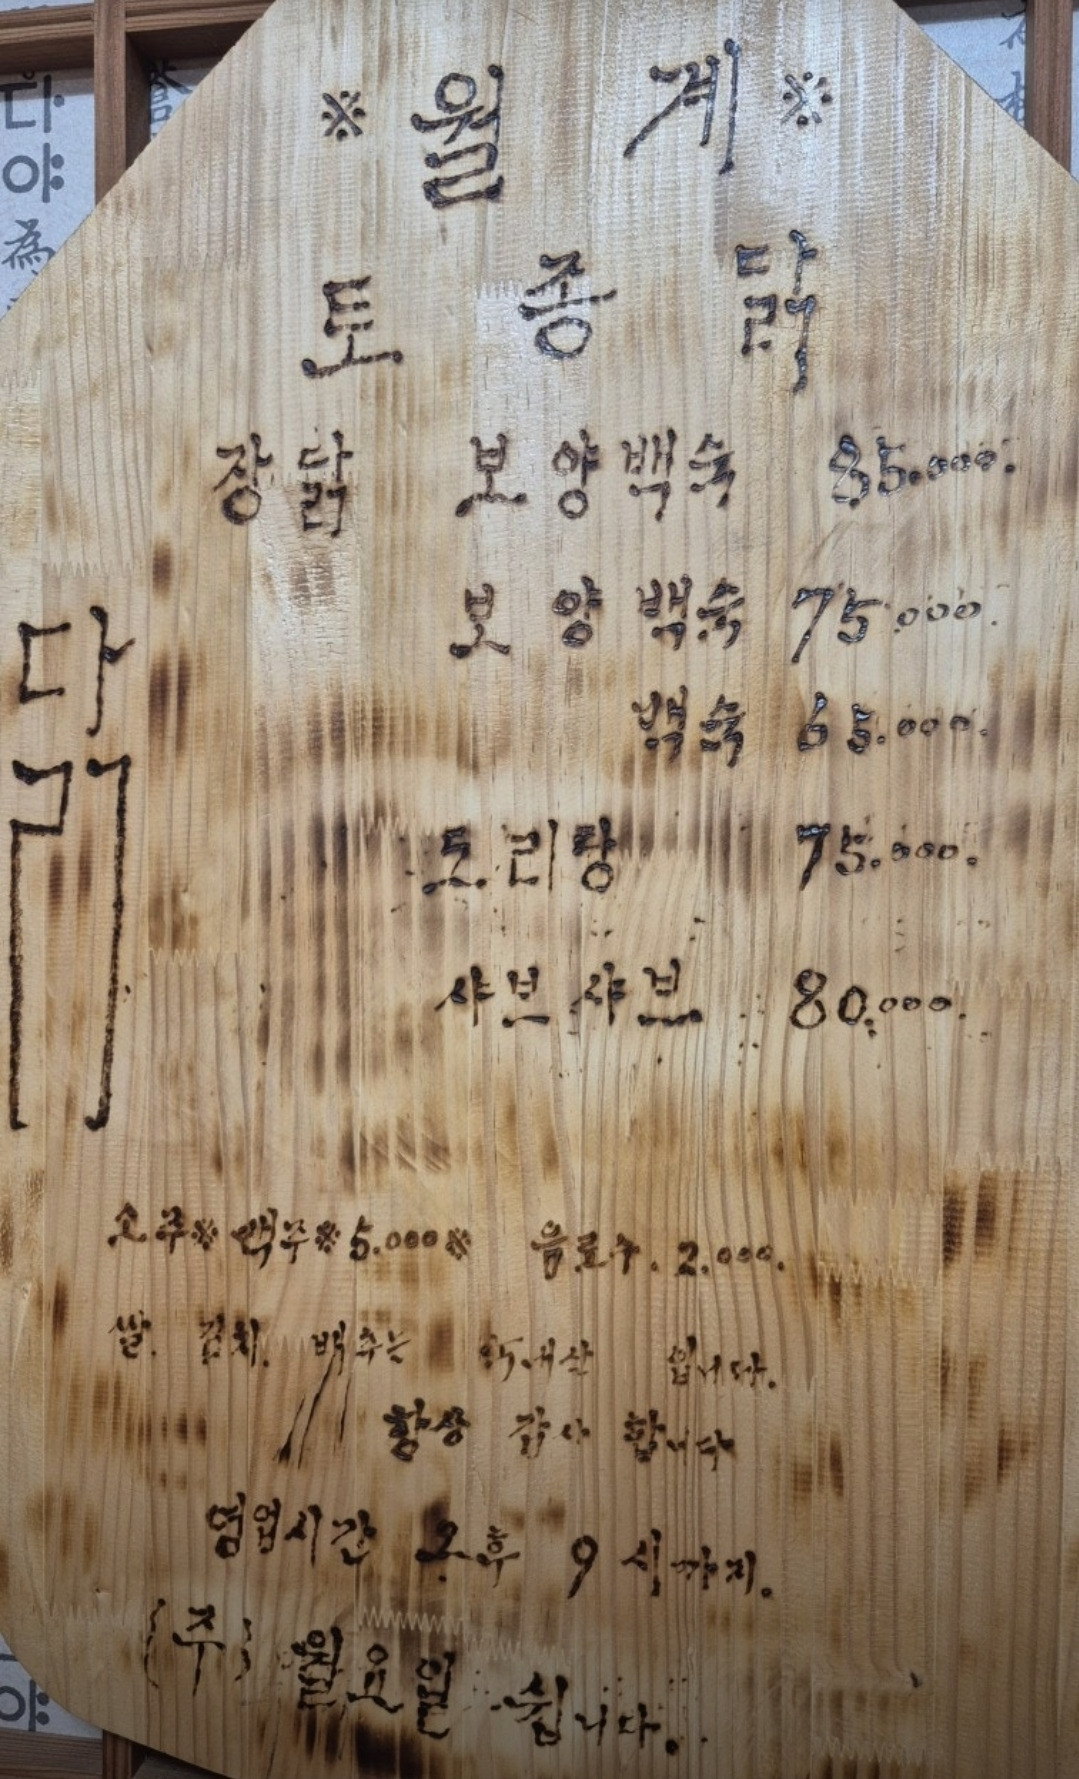 ※ 월 계 ※
토 종 닭
장 닭 보 양 백 숙 85.000.
보 양 백 숙 75.000.
백 숙 65.000.
도 리 탕 75.000.
샤 브 샤 브 80.000.
닭
소주※ 맥주※ 5.000※ 음료수. 2.000.
쌀. 김치. 배추는 국내산 입니다.
항상 감사 합니다
영업시간 오후 9 시까지.
(주) 월요일 쉽니다.
다
야
為